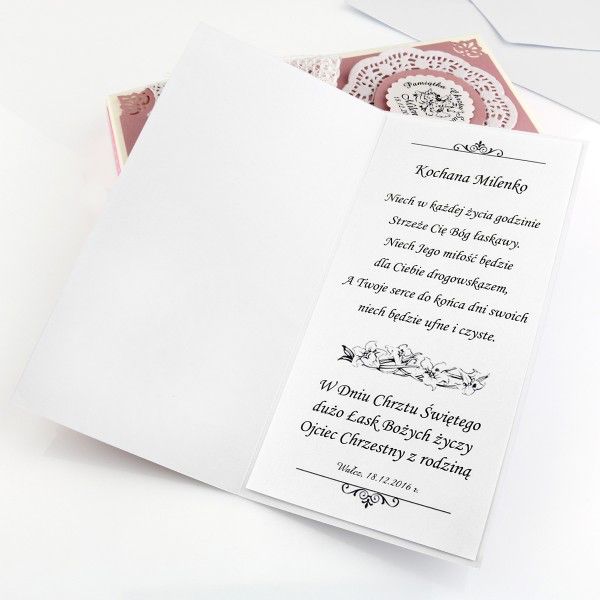 Pamiątka
Kochana Milenko
Niech w każdej życia godzinie
Strzeże Cię Bóg łaskawy.
Niech Jego miłość będzie
dla Ciebie drogowskazem,
A Twoje serce do końca dni swoich
niech będzie ufne i czyste.
W Dniu Chrztu Świętego
dużo Łask Bożych życzy
Ojciec Chrzestny z rodziną
Wałcz, 18.12.2016 r.